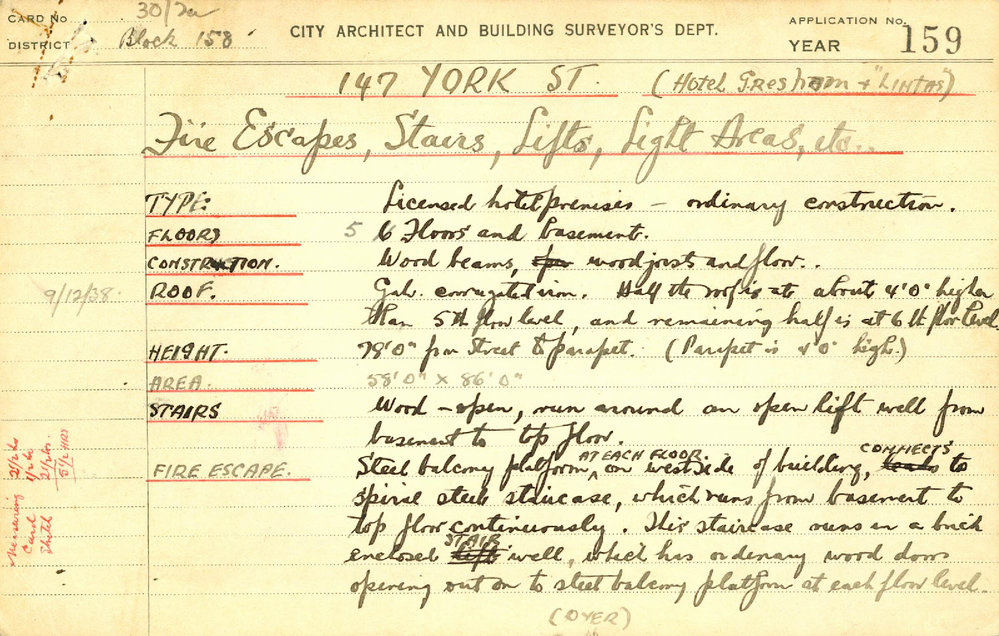 CARD No 30/7a
DISTRICT Block 158
CITY ARCHITECT AND BUILDING SURVEYOR'S DEPT.
APPLICATION No.
YEAR 159
147 YORK ST. (Hotel Gresham + "LINTAS")
Fire Escapes, Stairs, Lifts, Light Areas, etc..
TYPE: Licensed hotel premises - ordinary construction.
FLOORS 5 6 Floors and basement.
CONSTRUCTION. Wood beams, wood joists and floor..
9/12/38. ROOF. Gal. corrugated iron. Half the roof is at about 4'0" higher
than 5th floor level, and remaining half is at 6th floor level
HEIGHT. 78'0" from Street to parapet. (Parapet is 4'0" high.)
AREA. 58'0" x 86'0"
STAIRS Wood - open, run around an open lift well from
basement to top floor.
FIRE ESCAPE. Steel balcony platform, AT EACH FLOOR. on west side of building, leads CONNECTS to
spiral steel staircase, which runs from basement to
top floor continuously. This staircase runs in a brick
enclosed lift STAIR well, which has ordinary wood doors
opening out on to steel balcony platform at each floor level.
(OVER)
Measuring 2½ hrs
Card ½ hr
Sketch 2½ hrs.
5½ HRS